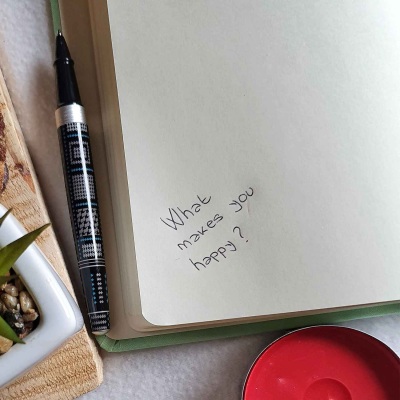 What
makes you
happy?